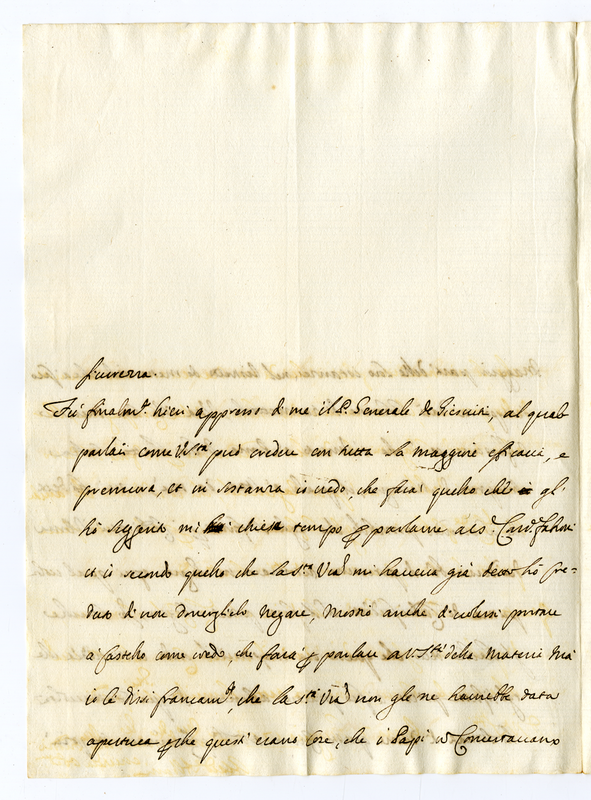 sicurezza.
Fù finalm.te hieri appresso di me il P. Generale de Giesuiti, al quale
parlai come V.S.tà può credere con tutta la maggiore efficacia, e
premura, et in sostanza io credo, che farà quello che gl'
hò suggerito mi chiese tempo p parlarne al S. Card.
et io secondo quello che la S.tà V.ra mi haveva già detto hò cre-
duto di non doverglielo negare, Mostrò anche di volersi portare
a Castello come credo, che farà p parlare a V. S.tà della materia Mà
io le dissi francam.te, che la S.tà V.ra non gle ne havrebbe data
apertura p che questi erano cose, che i Papi